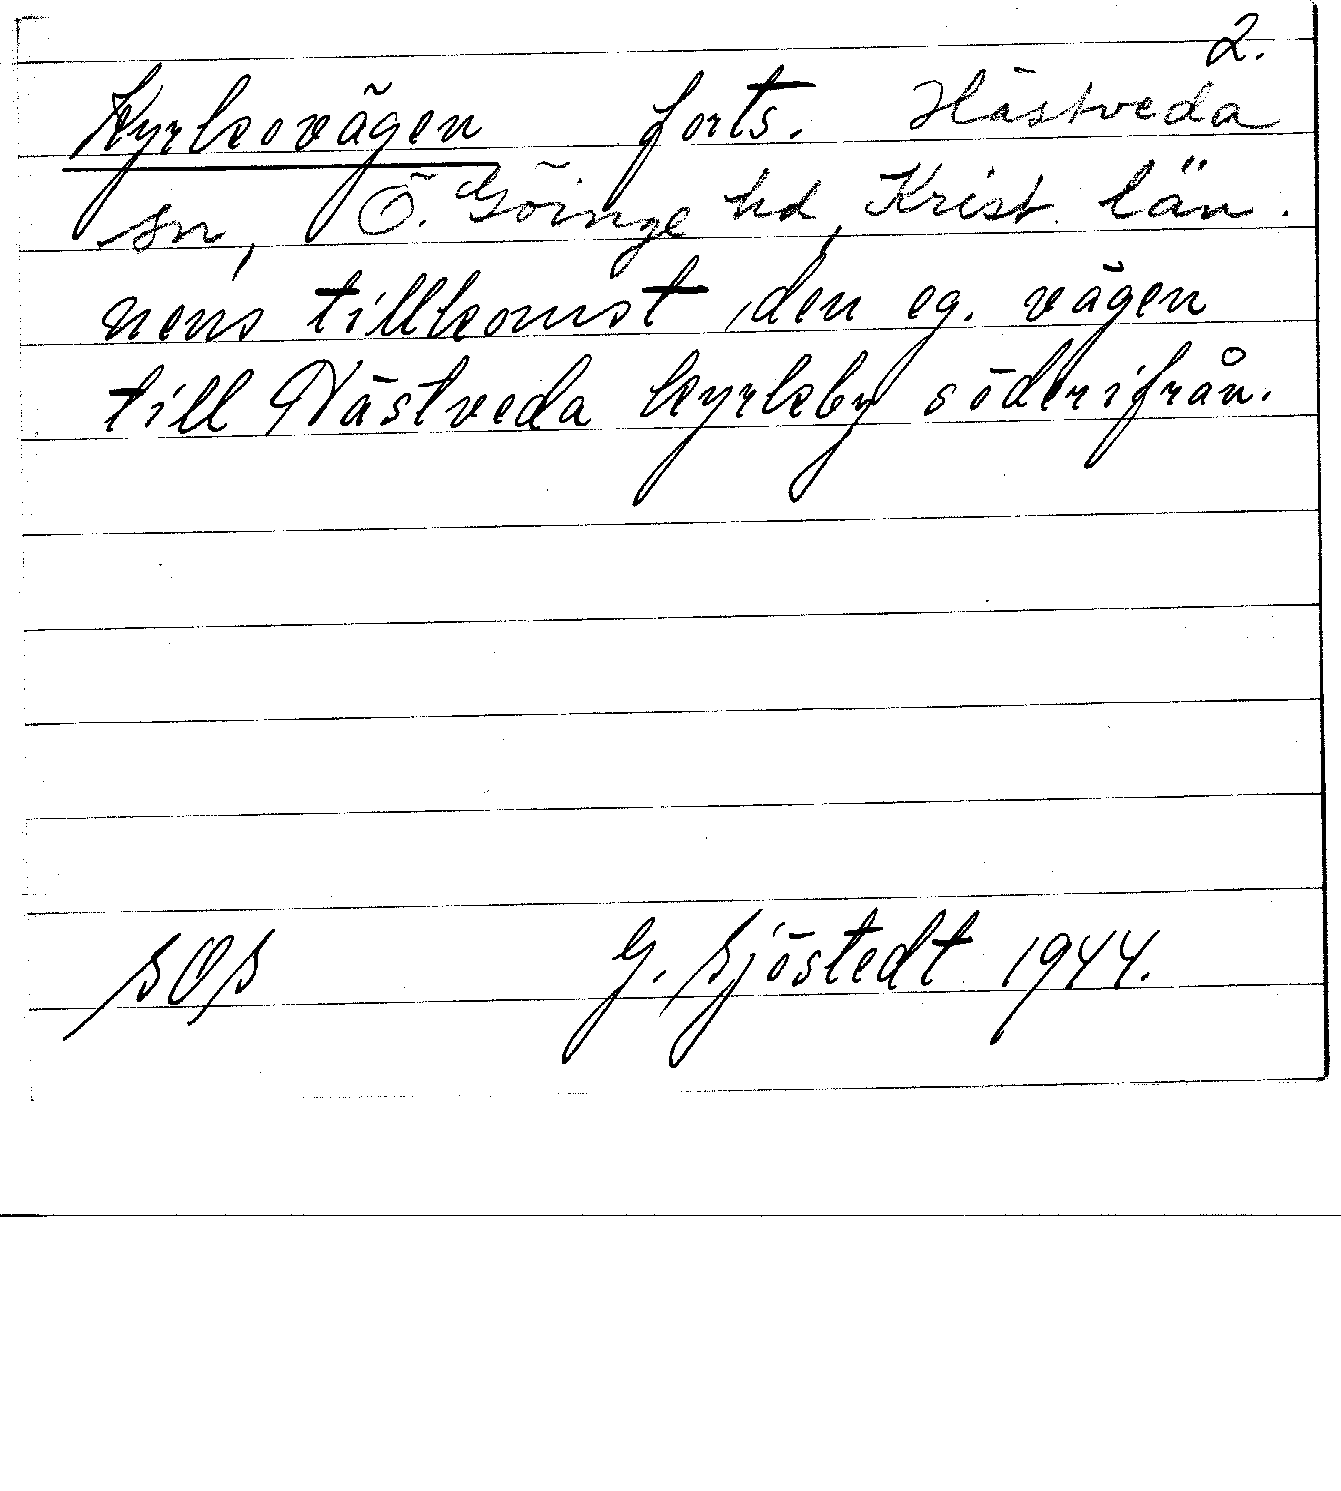 2.
Kyrkovägen forts. Hästveda
sn, Ö. Göinge hd, Krist. län.
nens tillkomst, den eg. vägen
till Hästveda kyrkby söderifrån.
SOS G. Sjöstedt 1944.